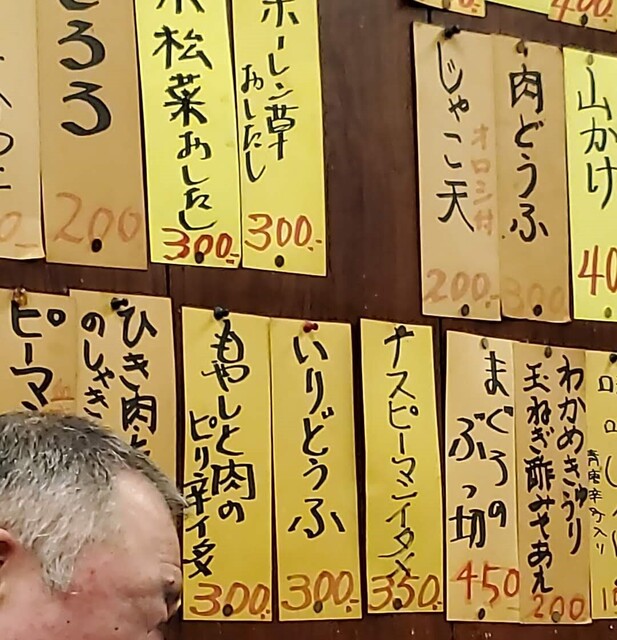 400
山かけ
40
肉どうふ
300
じゃこ天
オロシ付
200.-
ホーレン草
おしたし
300.-
小松菜おしたし
300.-
200
わかめきゅうり
玉ねぎ酢みそあえ
200
まぐろの
ぶつ切
450
ナスピーマンイタメ
350
いりどうふ
300
もやしと肉の
ピリ辛イタメ
300
ひき肉
のしゃき
ピーマン